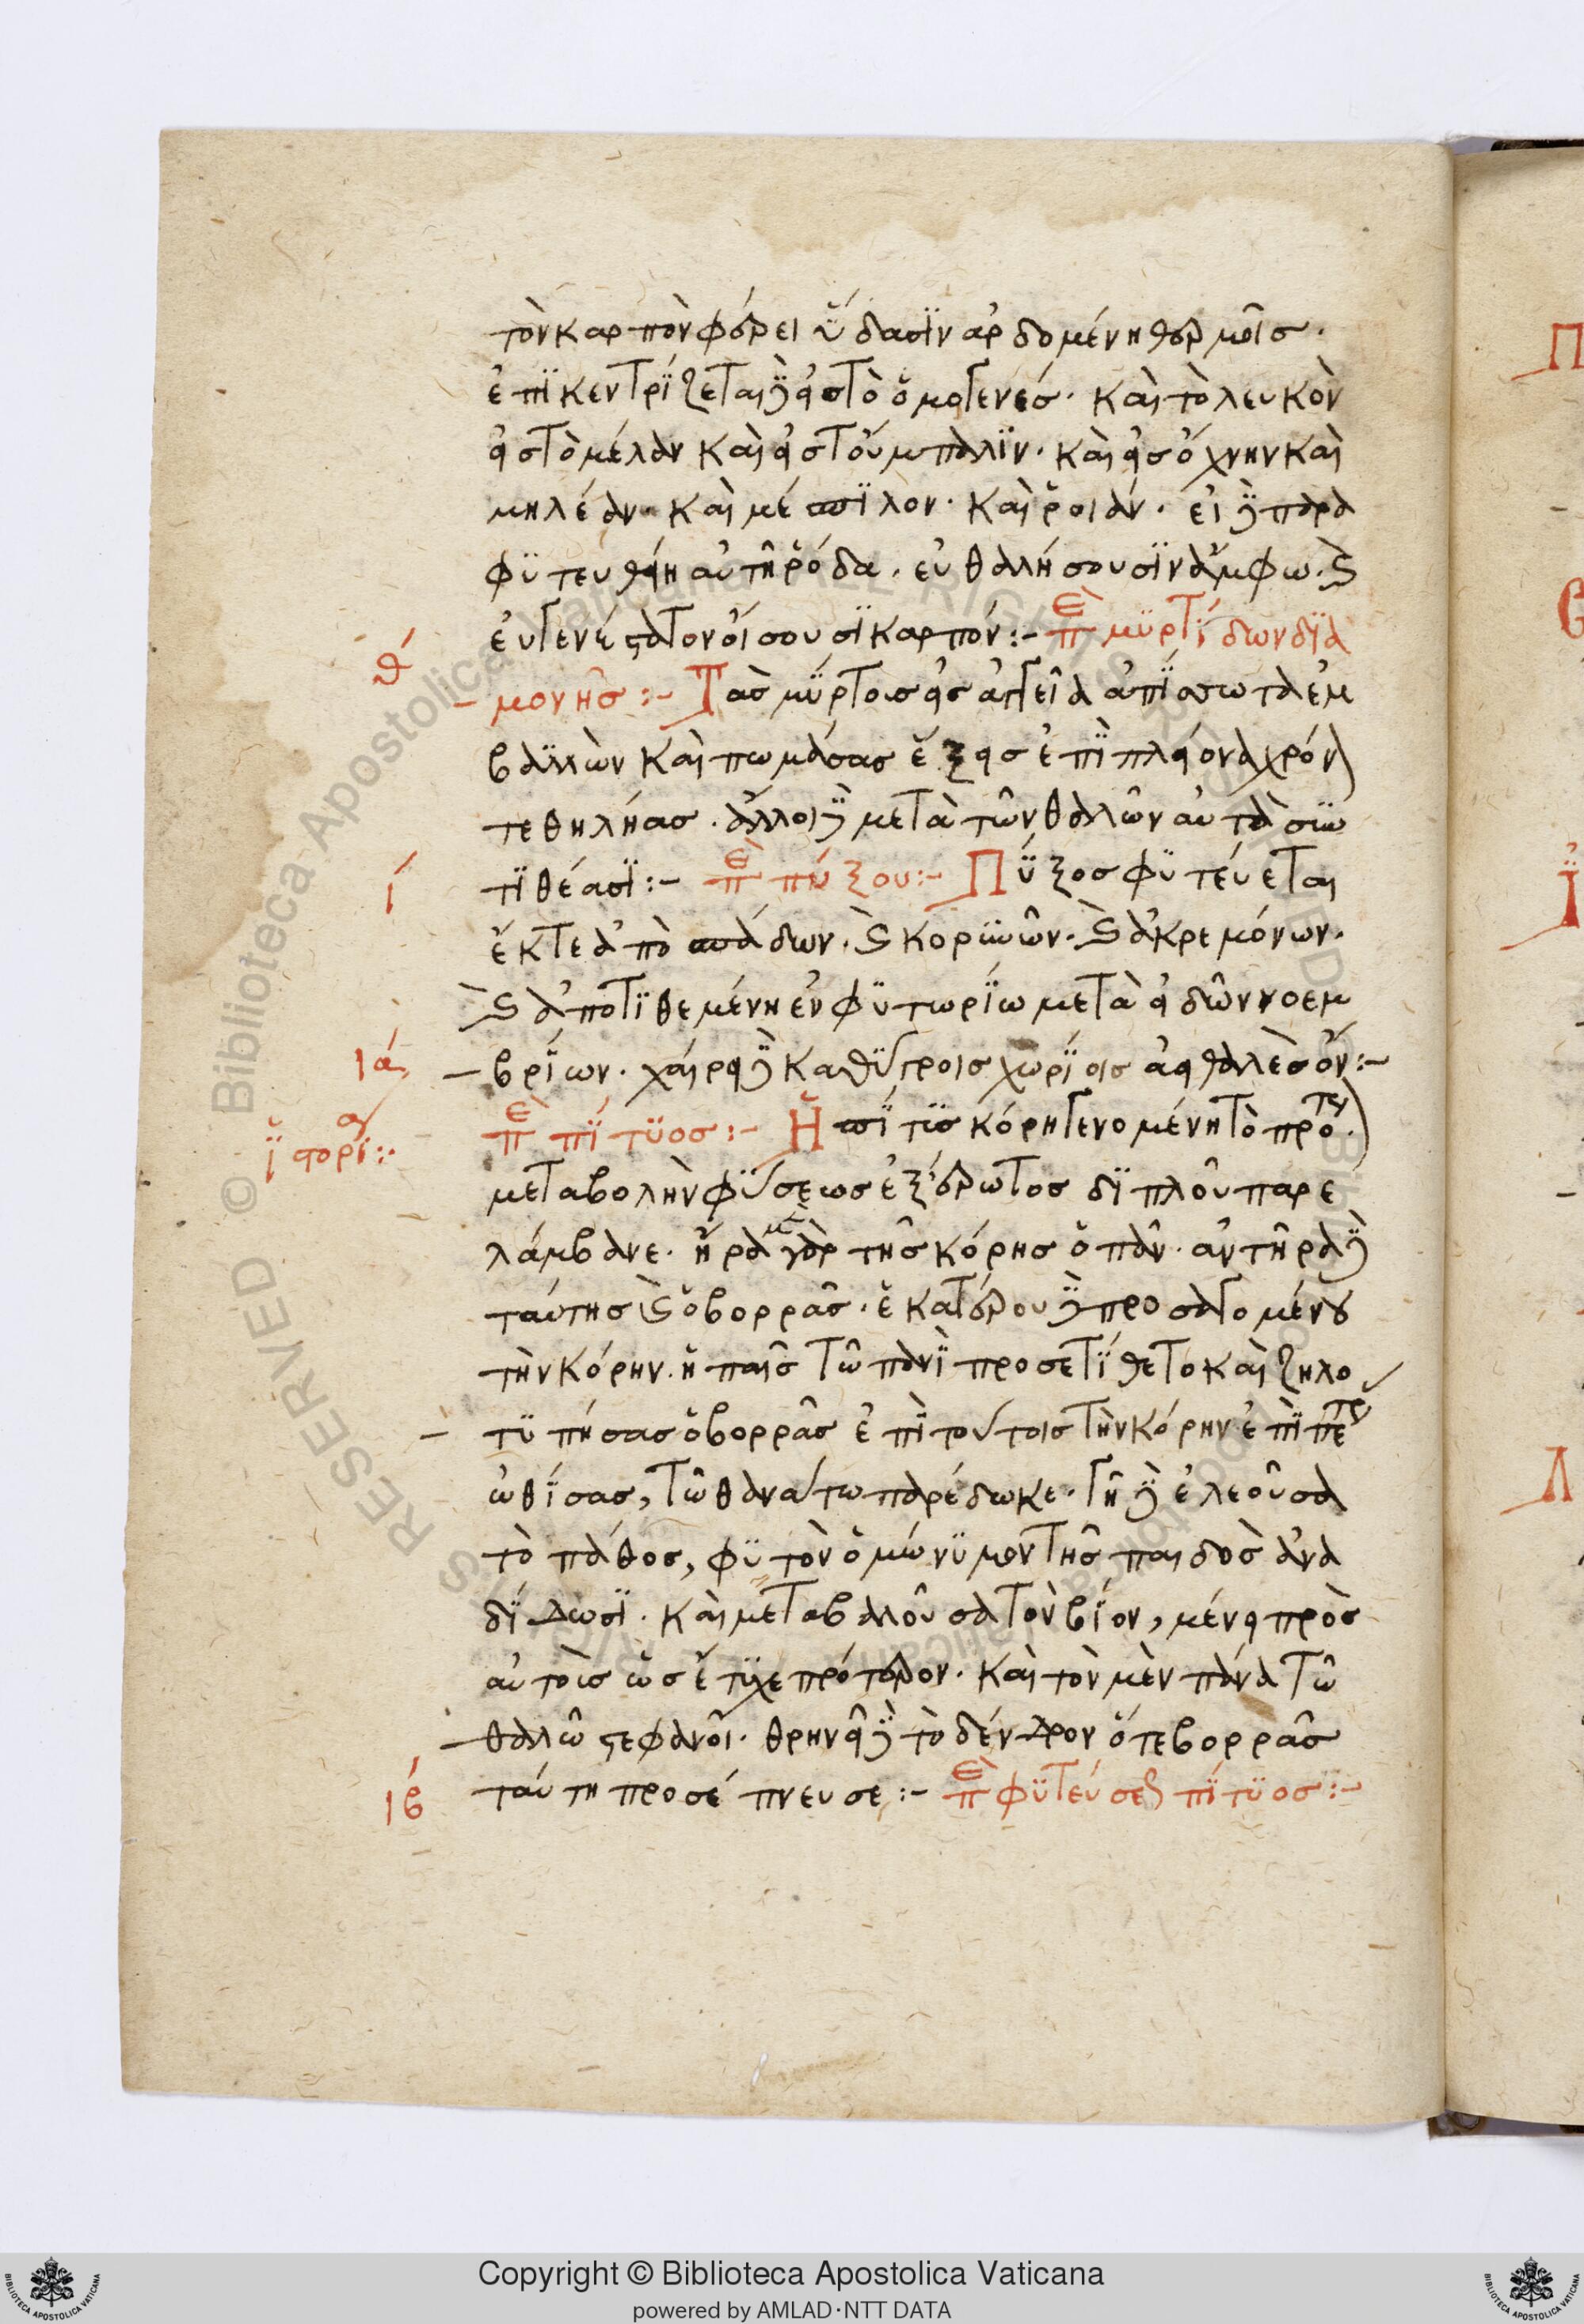 τὸν καρπὸν φέρει ὕδασϊν ἀρδομένη θερμοῖς.
ἐπϊκεντρΐζεται δὲ εἰς τὸ ὁμογενές. καὶ τὸ λευκὸν
εἰς τὸ μέλαν καὶ εἰς τοὔμπαλϊν. καὶ εἰς ὄχνην καὶ
μηλέαν. καὶ μέσπϊλον. καὶ ῥοιάν. εἰ δὲ παρα
φϋτευθείη αὐτῆ ῥόδα. εὐθαλήσουσϊν ἄμφω. καὶ
θ΄
εὐγενέστατον οἴσουσϊ καρπόν :- Περὶ μϋρτΐδων δϊα
μονῆς :- Τὰς μΰρτοις εἰς ἀγγεῖα ἀπΐσσωτα ἐμ
βάλλων καὶ πωμάσας ἕξεις ἐπῒ πλείονα χρόν)
τεθηλΐας. ἄλλοι δὲ μετὰ τῶν θαλλῶν αὐτὰ σϋν
ι΄
τϊθέασϊ :- Περὶ πύξου :- Πΰξος φϋτεύεται
ἔκ τε ἀποσπάδων. καὶ κορϋνῶν. καὶ ἀκρεμόνων.
καὶ ἀποτϊθεμένη ἐν φϋτωρΐω μετὰ εἰδῶν νοεμ
ια΄
βρΐων. χαίρει δὲ καθΰγροις χωρΐοις ἀειθαλὲς ὄν :-
ϊστορΐα :·
Περὶ πΐτϋος :- Ἡ πΐτϋς κόρη γενομένη τὸ πρότερ)
μεταβολὴν φΰσεως ἐξ ἔρωτος δϊπλοῦ παρε
λάμβανε. ἤρα μὲν γὰρ τῆς κόρης ὁ πάν. ἀντήρα δὲ
ταύτης καὶ ὁ βορρᾶς. ἑκατέρου δὲ προσαγομένου
τὴν κόρην. ἡ παῖς τῶ πανῒ προσετΐθετο καὶ ζηλο
τϋπήσας ὁ βορρᾶς ἐπῒ τούτοις τὴν κόρην ἐπῒ πέτρ
ὠθΐσας, τῶ θανάτω παρέδωκε. γῆ δὲ ἐλεοῦσα
τὸ πάθος, φϋτὸν ὁμώνϋμον τῆς παιδὸς ἀνα
δΐδωσϊ. καὶ μεταβαλοῦσα τὸν βΐον, μένει πρὸς
αὐτοῖς ὡς ἔτϋχε πρότερον. καὶ τὸν μὲν πάνα τῶ
θαλλῶ στεφανοῖ. θρηνεῖ δὲ τὸ δένδρον ὅτε βορρᾶς
ιβ΄
ταύτη προσέπνευσε :- Περὶ φϋτεύσεως πΐτϋος :-
Copyright © Biblioteca Apostolica Vaticana
powered by AMLAD·NTT DATA